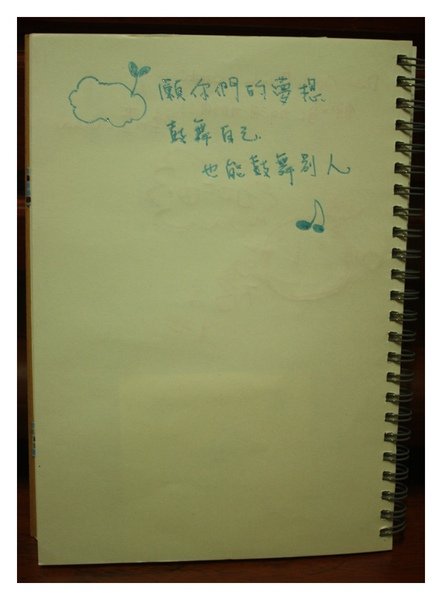 願你們的夢想
鼓舞自己
也能鼓舞別人